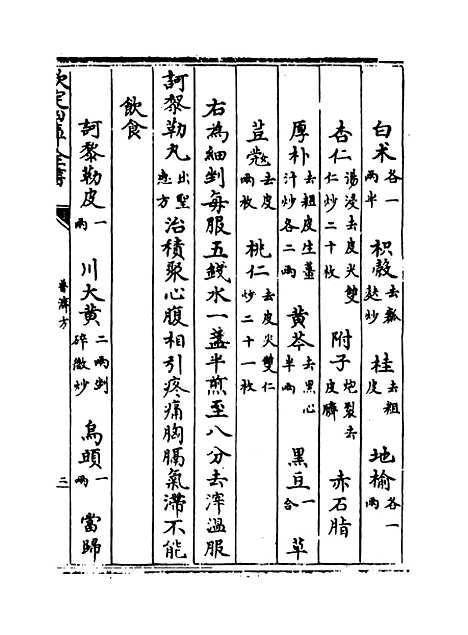 白术各一兩半 枳殼去瓤麩炒 桂去粗皮 地榆各一兩
杏仁湯浸去皮尖雙仁炒二十枚 附子炮裂去皮臍 赤石脂
厚朴去粗皮生薑汁炒各二兩 黄芩去黑心半兩 黑豆一合 草
荳蔻去皮兩枚 桃仁去皮尖雙仁炒二十一枚
右為細剉每服五錢水一盞半煎至八分去滓溫服
訶黎勒丸出聖惠方治積聚心腹相引疼痛胸膈氣滯不能
飲食
訶黎勒皮一兩 川大黄二兩剉碎微炒 烏頭一兩 當歸
欽定四庫全書
普濟方
三